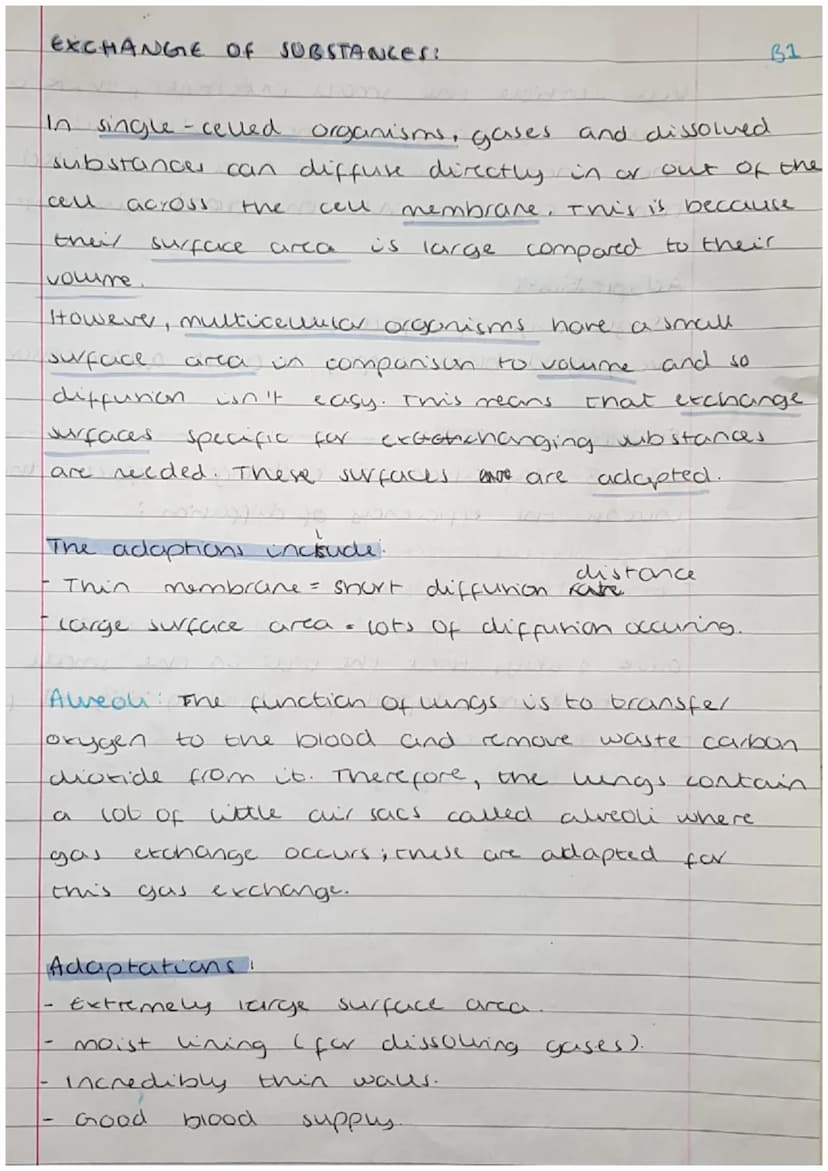 EXCHANGE OF SUBSTANCES: B1
In single-celled organisms, gases and dissolved
substances can diffuse directly in or out of the
cell across the cell membrane. This is because
their surface area is large compared to their
volume.
However, multicellular organisms have a small
surface area in comparison to volume and so
diffusion isn't easy. This means that exchange
surfaces specific for exchanging substances
are needed. These surfaces are adapted.
The adaptions include:
- Thin membrane = short diffusion distance
- Large surface area = lots of diffusion occuring.
Alveoli: The function of lungs is to transfer
oxygen to the blood and remove waste carbon
dioxide from it. Therefore, the lungs contain
a lot of little air sacs called alveoli where
gas exchange occurs; these are adapted for
this gas exchange.
Adaptations:
- Extremely large surface area.
- moist lining (for dissolving gases).
- Incredibly thin walls.
- Good blood supply.